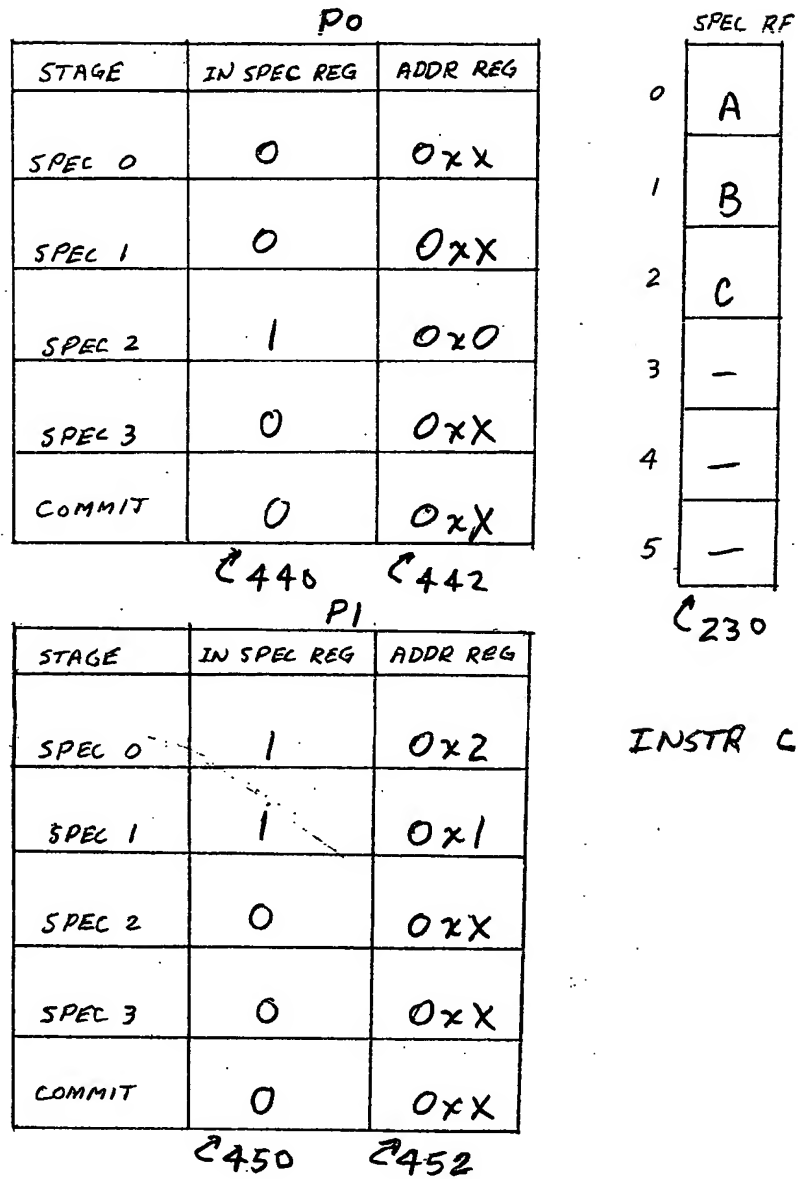 P0
STAGE IN SPEC REG ADDR REG
SPEC 0 0 0xX
SPEC 1 0 0xX
SPEC 2 1 0x0
SPEC 3 0 0xX
COMMIT 0 0xX
440 442
SPEC RF
0 A
1 B
2 C
3 —
4 —
5 —
230
P1
STAGE IN SPEC REG ADDR REG
SPEC 0 1 0x2
SPEC 1 1 0x1
SPEC 2 0 0xX
SPEC 3 0 0xX
COMMIT 0 0xX
450 452
INSTR C